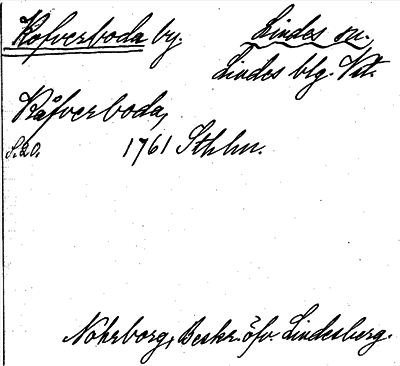 Kofverboda by. Lindes sn.
Lindes blg. Vstm.
Kåfverboda,
S. 20. 1761 Sthlm.
Nohrborg, Beskr. öfv. Lindesberg.